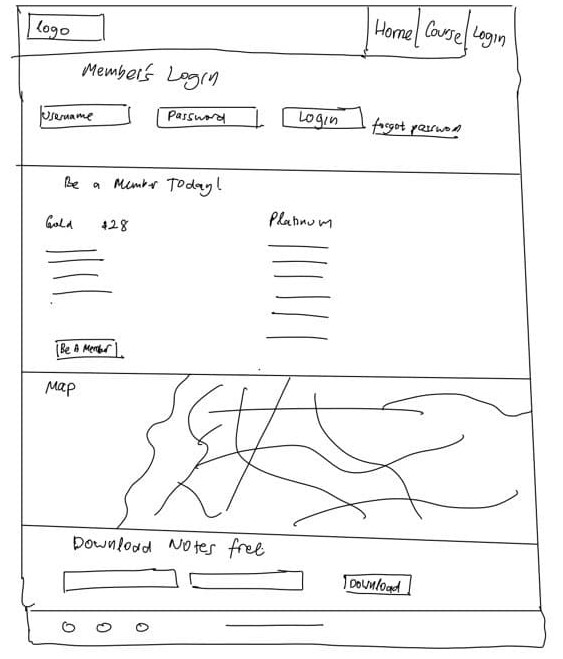 Logo
Home Course Login
Member's Login
Username Password Login forgot password
Be a Member Today!
Gold $28 Platinum
Be A Member
Map
Download Notes free
Download